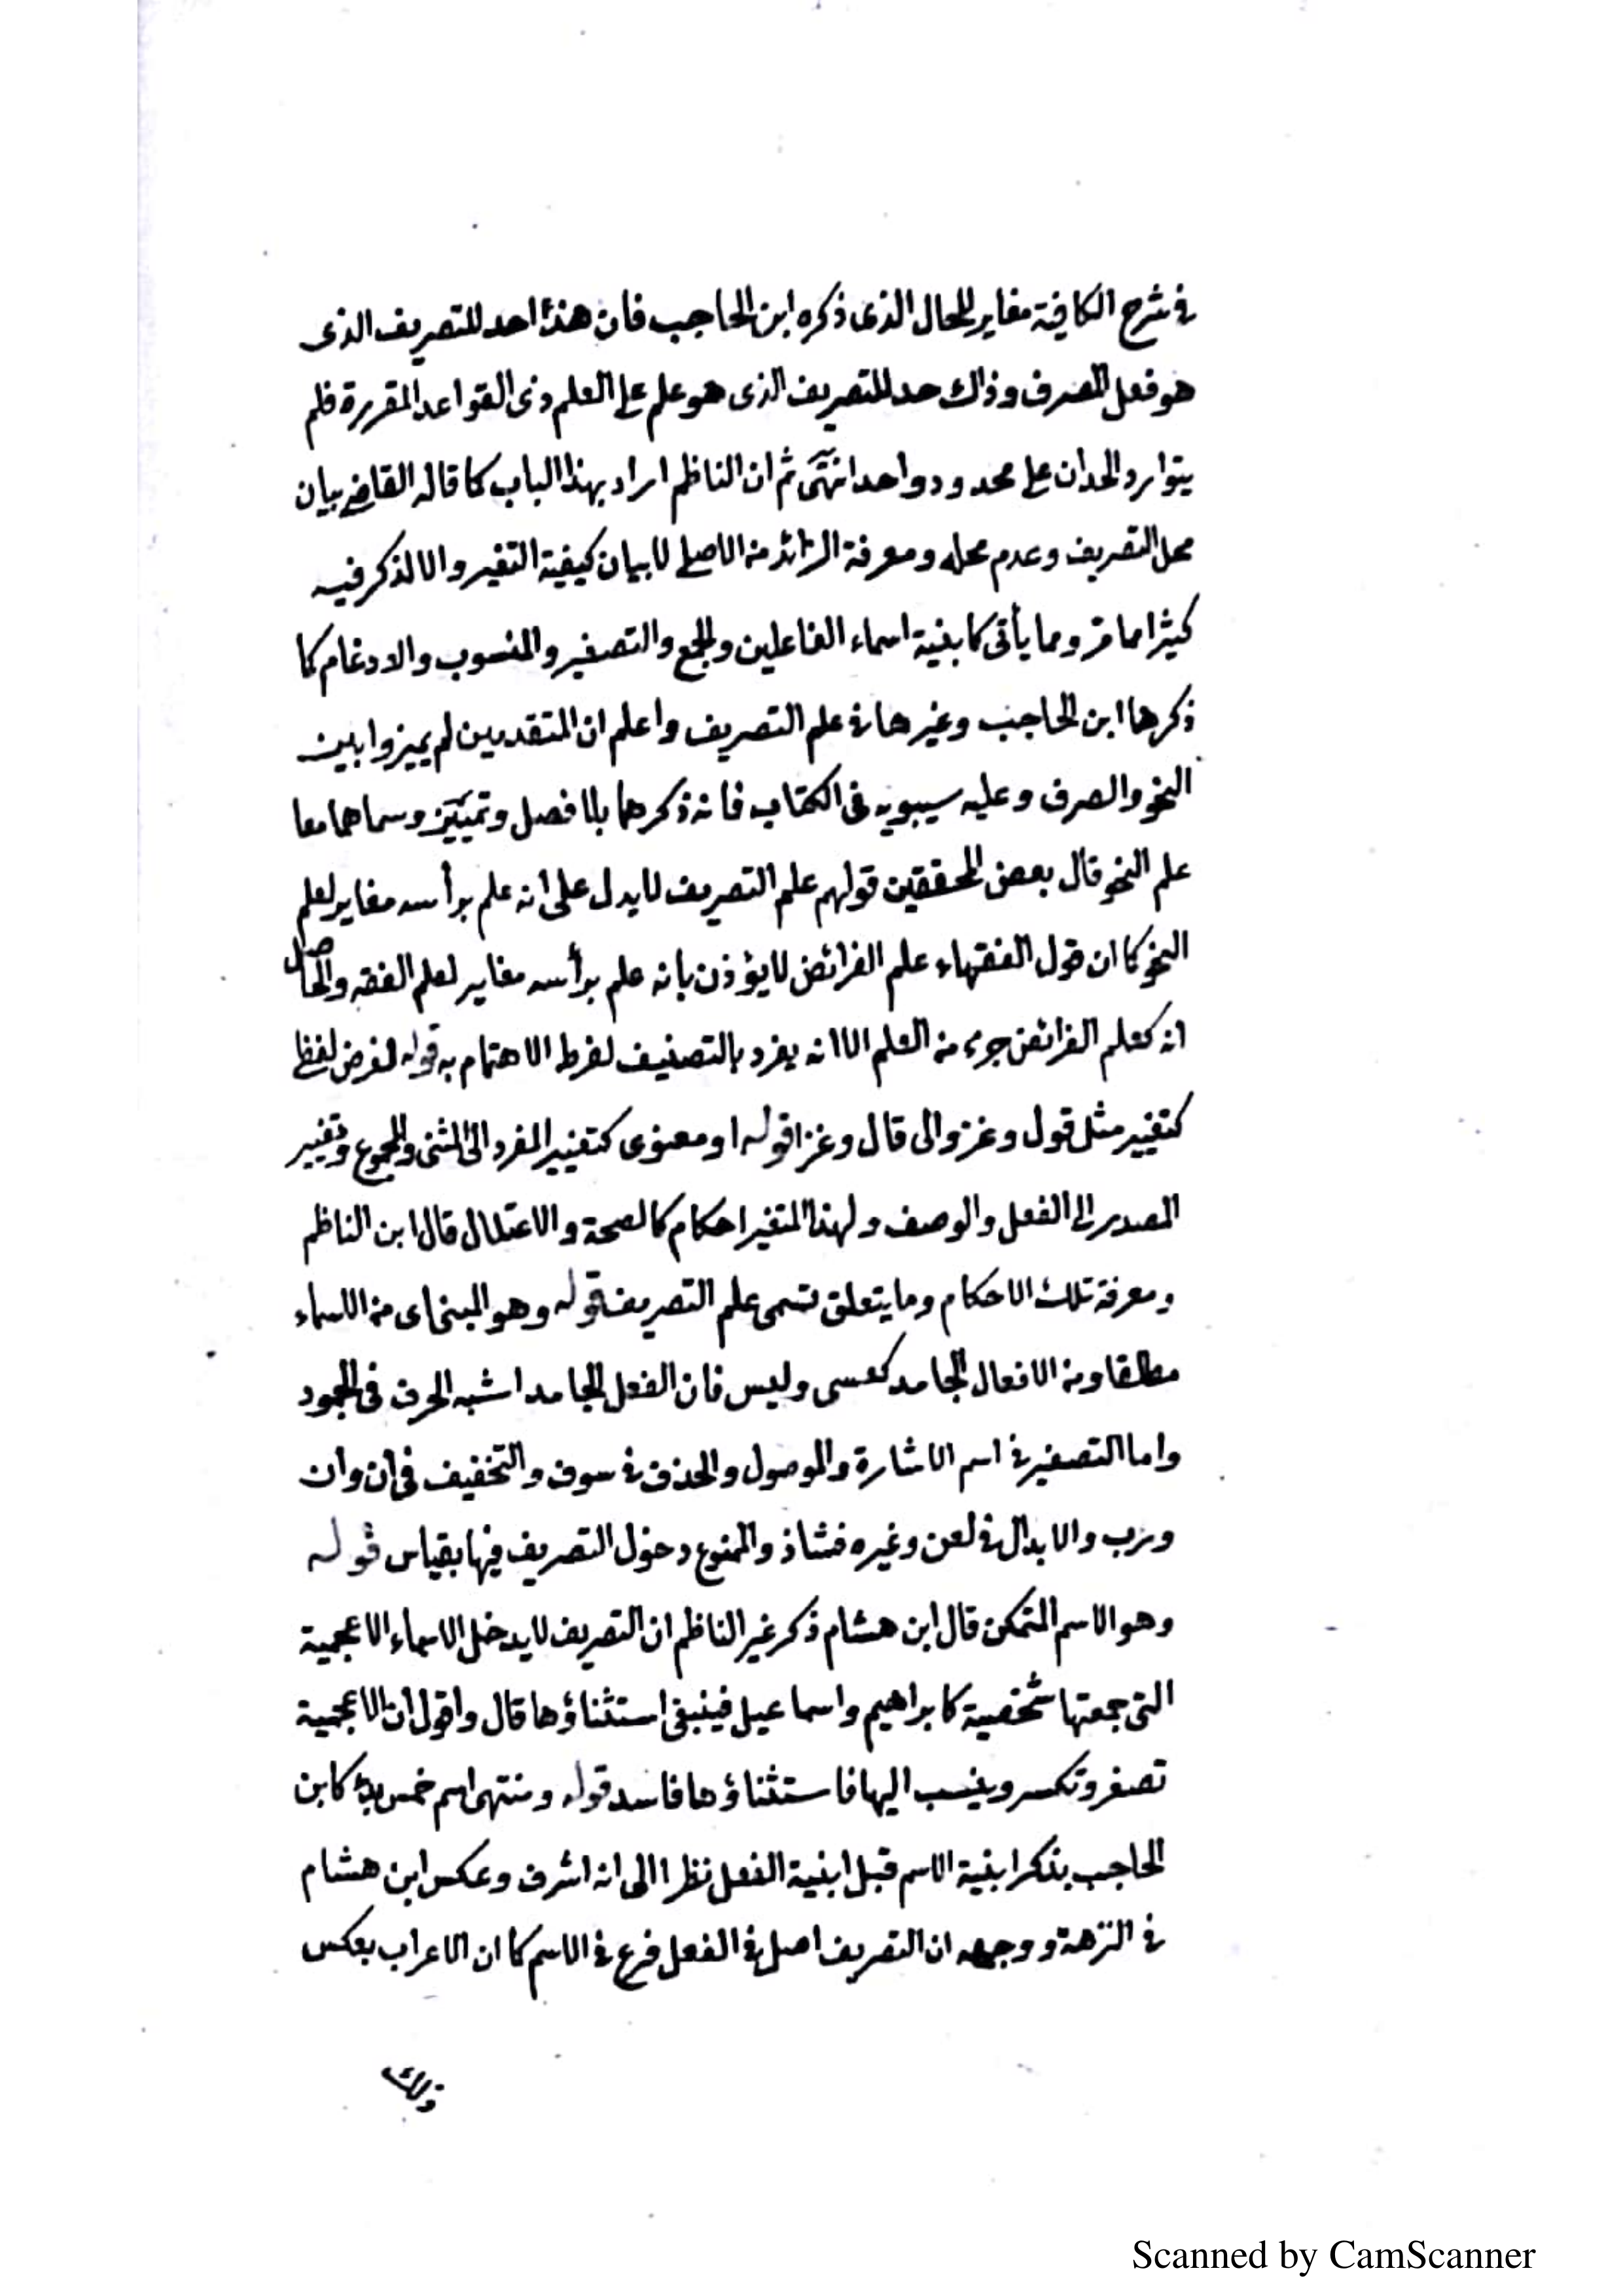 في شرح الكافية مغاير للحال الذى ذكره ابن الحاجب فان هذا احد للتصريف الذى
هو فعل المصرف وذاك حد للتصريف الذى هو علم على العلم ذى القواعد المقررة فلم
يتوارد الحدان على محدود واحد انتهى ثم ان الناظم اراد بهذا الباب كما قاله القاضي بيان
محل التصريف وعدم محله ومعرفة الزائد من الاصلي لا بيان كيفية التغير والا لذكر فيه
كثيرا مما مر ومما يأتى كابنية اسماء الفاعلين والجمع والتصغير والمنسوب والادغام كما
ذكرها ابن الحاجب وغيرها في علم التصريف واعلم ان المتقدمين لم يميزوا بين
النحو والصرف وعليه سيبويه فى الكتاب فانه ذكرهما بلا فصل وتمييز وسماهما معا
علم النحو قال بعض المحققين قولهم علم التصريف لا يدل على انه علم برأسه مغاير لعلم
النحو كما ان قول الفقهاء علم الفرائض لا يؤذن بانه علم برأسه مغاير لعلم الفقه والحاصل
انه كعلم الفرائض جزء من العلم الا انه يفرد بالتصنيف لفرط الاهتمام به قوله لغرض لفظي
كتغيير مثل قول وغزو الى قال وغزا قوله او معنوى كتغيير المفرد الى المثنى والمجموع وتغيير
المصدر الى الفعل والوصف ولهذا المتغير احكام كالصحة والاعتلال قال ابن الناظم
ومعرفة تلك الاحكام وما يتعلق تسمى علم التصريف قوله وهو المبنى اى من الاسماء
مطلقا ومن الافعال الجامد كعسى وليس فان الفعل الجامد اشبه الحرف فى الجمود
واما التصغير في اسم الاشارة والموصول والحذف في سوف والتخفيف فى ان وان
ورب والابدال في لعن وغيره فشاذ والممنوع دخول التصريف فيها بقياس قوله
وهو الاسم المتمكن قال ابن هشام ذكر غير الناظم ان التصريف لا يدخل الاسماء الاعجمية
التى جمعتها شخصية كابراهيم واسماعيل فينبغى استثناؤها قال واقول ان الاعجمية
تصغر وتكسر وينسب اليها فاستثناؤها فاسد قوله ومنتهى اسم خمس بدأ كابن
الحاجب بذكر ابنية الاسم قبل ابنية الفعل نظرا الى انه اشرف وعكس ابن هشام
في النزهة ووجهه ان التصريف اصل في الفعل فرع في الاسم كما ان الاعراب بعكس
ذلك
Scanned by CamScanner